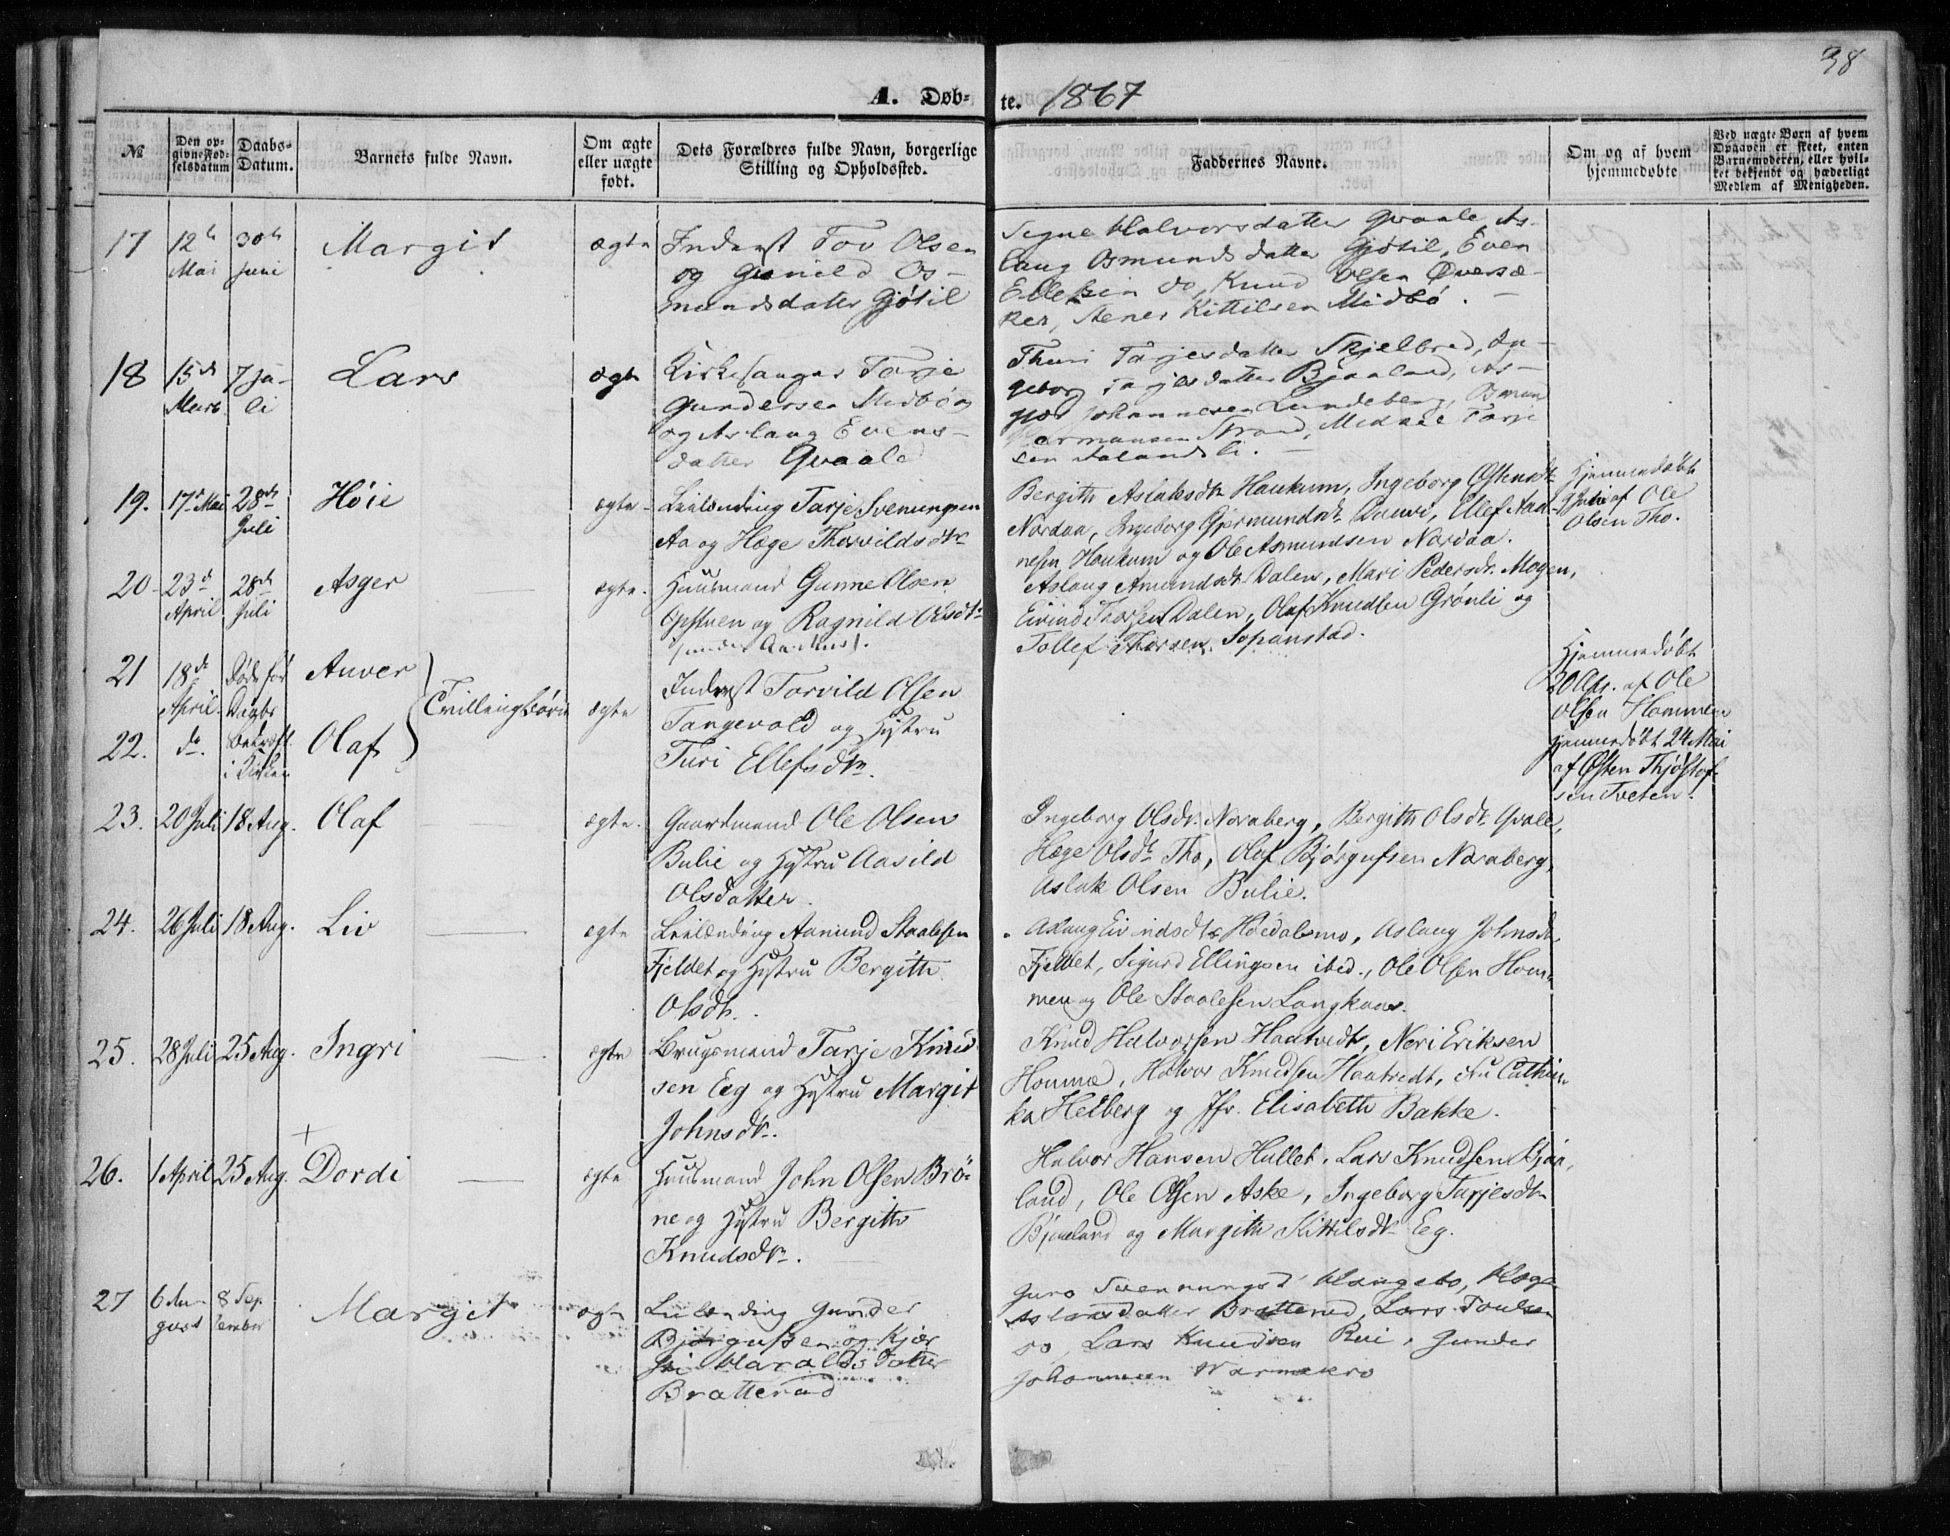 38
A. Døbte. 1867
№
Den opgivne Fødselsdatum
Daabs-Datum.
Barnets fulde Navn.
Om ægte eller uægte født.
Dets Forældres fulde Navn, borgerlige Stilling og Opholdssted.
Faddernes Navne.
Om og af hvem hjemmedøbte
Ved uægte Børn af hvem Opgaven er skeet, enten Barnemoderen, eller hvilket bekjendt og hæderligt Medlem af Menigheden.
17
12te Mai
30te Juni
Margit
ægte
Inderst Tov Olsen
og Gunild Os-
mundsdatter Gjøtil
Signe Halvorsdatter Qvaale, As-
laug Osmundsdatter Gjøtil, Even
Ellefsen do, Knud Olsen Øversa-
ker, Kittilsen Midbø.
18
15de Marts
7 Juli
Lars
ægte
Kirkesanger Tarje
Gundersen Midbø
og Aslaug Evens-
datter Qvaale
Thuri Tarjesdatter Skjelbred, In-
geborg Tarjesdatter Bjaaland, As-
Johannesen Lundeberg, Osmun
Hermansen Strand, Tarje
sen
19.
17de Mai
28de Juli
Høie
ægte
Leilænding Tarje Svenungsen
Aa og Hæge Thorvildsdtr
Bergith Aslaksdtr Haukum, Ingeborg Østensdtr
Nordaa, Ingeborg Gjermundsdtr, Ellef Aad-
nesen Haukum og Ole Asmundsen Nordaa.
Hjemmedøbt
af Ole
Olsen Tho.
20
23de April
28de Juli
Asger
ægte.
Huusmand Gunne Olsen
Opstuen og Ragnild Olsdtr
Aslaug Amundsdtr Dalen, Mari Pedersdtr Mogen,
Eivind Thorsen Dalen, Olaf Knudsen Grønli og
Tollef Thorsen
21
18de April
Døde før
Daab
Anver
Tvillingbørn
ægte
Inderst Torvild Olsen
Tangevald og Hustru
Turi Ellefsdtr.
Hjemmedøbt
20 Apr. af Ole
Olsen Hommen
22.
do.
i Kirken
Olaf
hjemmedøbt 24 Mai
af Østen Thjøstof-
sen Tveten.
23.
20 Juli
18 Aug.
Olaf
ægte.
Gaardmand Ole Olsen
Bulie og Hustru Aasild
Olsdatter.
Ingeborg Olsdtr. Noraberg, Bergith Olsdtr Qvale,
Hæge Olsdtr Tho, Olaf Bjørgufsen Noraberg,
Aslak Olsen Bulie.
24.
26 Juli
18 Aug.
Liv
ægte
Leilænding Aamund Staalesen
Fjeldet og Hustru Bergith
Olsdtr.
Aslaug Eivindsdtr Høidalsmo, Aslaug Johnsdtr
Fjeldet, Sigurd Ellingsen ibid., Ole Olsen Hom-
men og Ole Staalesen Langkaas.
25.
28 Juli
25 Aug.
Ingri
ægte
Brugsmand Tarje Knud
sen Eeg og Hustru Margit
Johnsdtr.
Knud Halvorsen Haatvedt, Neri Eriksen
Homme, Halvor Knudsen Haatvedt, Fru Cathin
ka Helberg og Jfr. Elisabeth Bakke.
26.
1 April
25 Aug.
+
Dordi
ægte
Huusmand John Olsen Brø-
ne og Hustru Bergith
Knudsdtr.
Halvor Hansen Hullet, Lars Knudsen Bjaa-
land, Ole Olsen Aske, Ingeborg Tarjesdtr
Bjaaland og Margith Kittilsdtr Eeg.
27
6 August
8 September
Margit
ægte
Leilænding Gunder
Bjørgufsen og Kjær
sti Haraldsdatter
Bratterud
Guro Svennungsd Haugebø, Hæge
Aslaksdatter Bratterud, Lars
do, Lars Knudsen Rui, Gunder
Johannesen